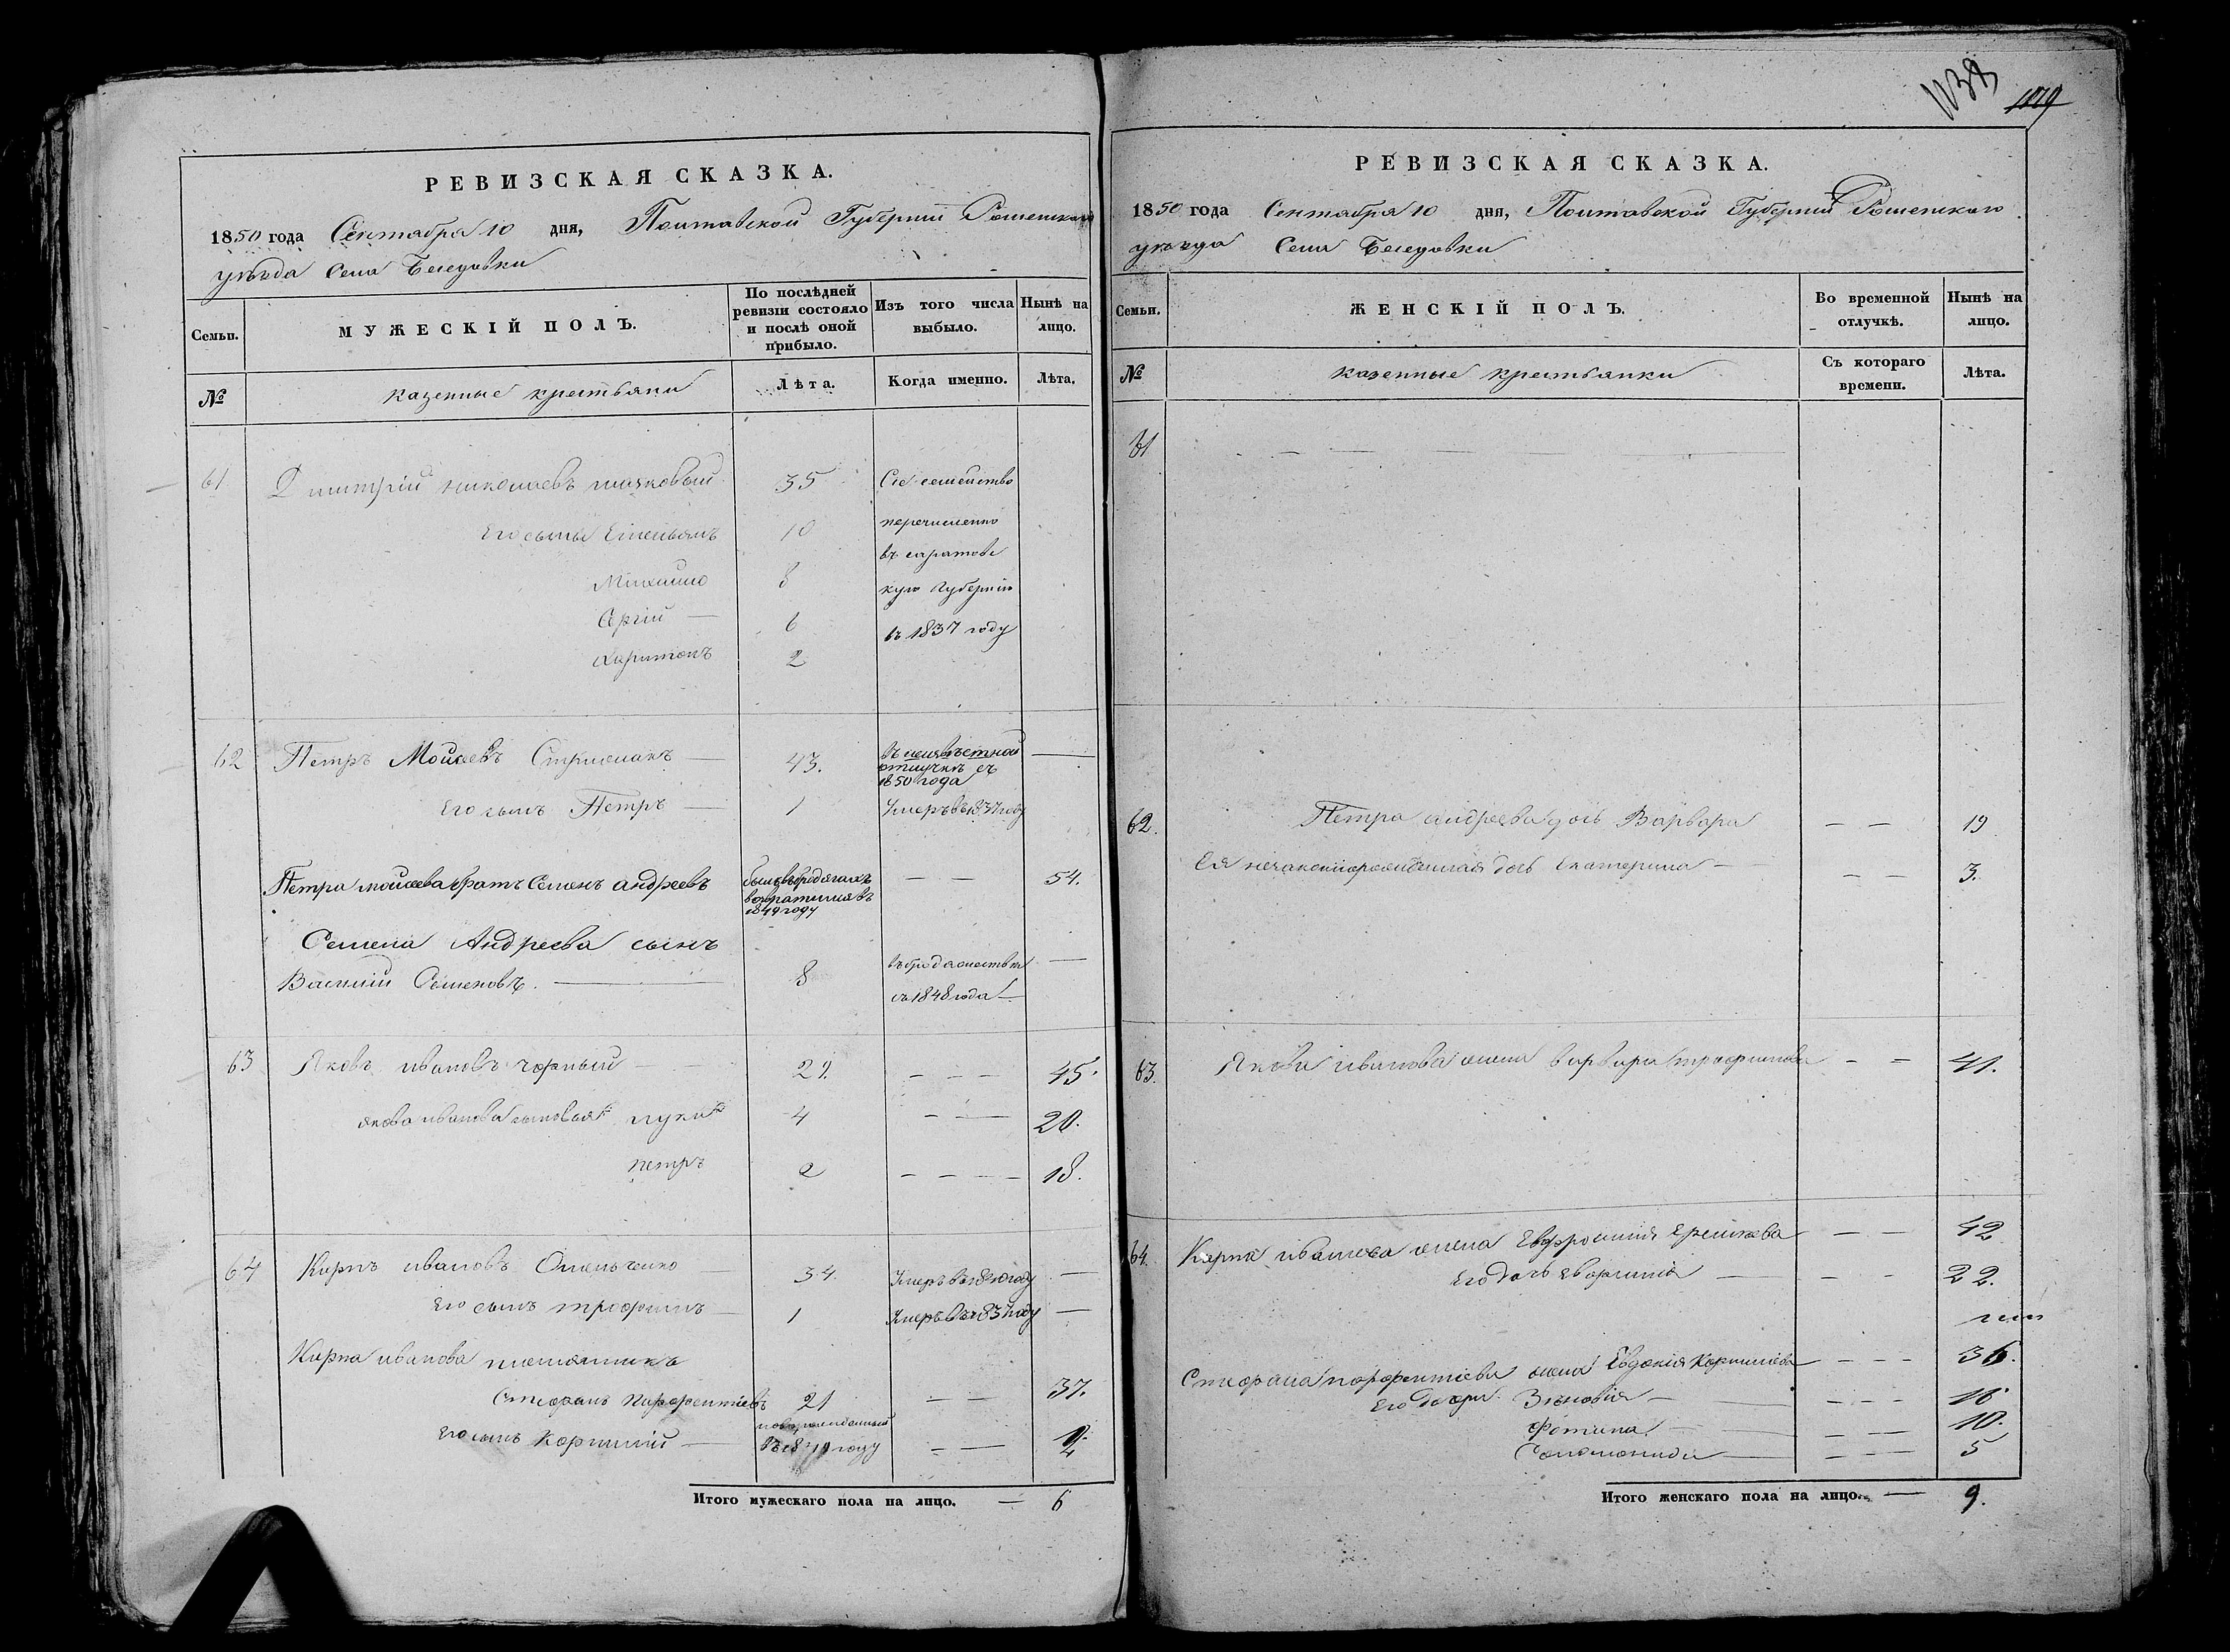 1138
1079
РЕВИЗСКАЯ СКАЗКА.
1850 года Сентября 10 дня, Полтавской Губернии Роменскаго
уѣзда Села Беседовки
Семьи.
МУЖЕСКІЙ ПОЛЪ.
По послѣдней ревизіи состояло и послѣ оной прибыло.
Изъ того числа выбыло.
Нынѣ на лицо.
№
казенные крестьяни
Лѣта.
Когда именно.
Лѣта.
61 Дмитрій николаевъ 35 Сіе семейство
его сыны Емельянъ 10 перечисленно
Михаило 8 въ саратовс
Сергій — 6 кую Губернію
Харитонъ 2 въ 1837 году
62 Петръ Мойсеевъ — 43. въ неизвѣстной —
отлучкѣ съ
1850 года
его сынъ Петръ — 1 Умеръ въ 1837 году
Петра мойсеева братъ Семенъ андреевъ былъ въ бродягахъ — — 54.
возвратился въ
1849 году
Семена Андреева сынъ
Василій Семеновъ. — 8 въ бродяжествѣ —
съ 1848 года —
63 Яковъ ивановъ чорный — 29. — — — 45.
якова иванова сыновья: лука 4 — — 20.
петръ 2 — — — 18.
64 Карпъ ивановъ Омельченко — 34. Умеръ въ году —
его сынъ трофимъ — 1 Умеръ въ 1837 году —
Карпа иванова племянникъ
Стефанъ Парфентіевъ 21 — — 37.
новорожденный
его сынъ Корнилій — въ году — — 2
Итого мужескаго пола на лицо. — 6
РЕВИЗСКАЯ СКАЗКА.
1850 года Сентября 10 дня, Полтавской Губерніи Роменскаго
уѣзда Села Беседовки
Семьи.
ЖЕНСКІЙ ПОЛЪ.
Во временной отлучкѣ.
Нынѣ на лицо.
№
казенные крестьянки
Съ котораго времени.
Лѣта.
61 — — — —
62. Петра андреева дочь Варвара — — 19
Ея незаконнорожденная дочь Екатерина — — — 3.
63. Якова иванова жена варвара трофимова — — 41.
64. Карпа иванова жена Евфросинія — — 42
Его дочь — — — 22.
Стефана парфентіева жена Евдокія Корнилева — — — 36.
Его дочери Зѣновія — — — — 16
Фотина — — — 10.
Соломонида — — — 5
Итого женскаго пола на лицо. — 9.